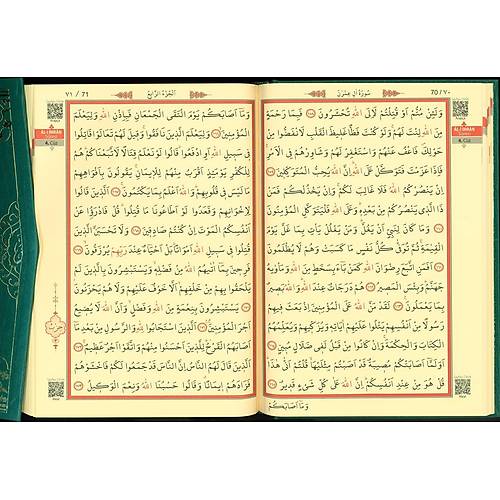 سُورَةُ اٰلِ عِمْرٰنَ
70 / ٧٠
ÂL-İ İMRÂN
4. Cüz
وَلَئِنْ مُتُّمْ اَوْ قُتِلْتُمْ لَاِلَى اللّٰهِ تُحْشَرُونَ ﴿١٥٨﴾ فَبِمَا رَحْمَةٍ
مِنَ اللّٰهِ لِنْتَ لَهُمْ وَلَوْ كُنْتَ فَظًّا غَلِيظَ الْقَلْبِ لَانْفَضُّوا مِنْ
حَوْلِكَ فَاعْفُ عَنْهُمْ وَاسْتَغْفِرْ لَهُمْ وَشَاوِرْهُمْ فِى الْاَمْرِ
فَاِذَا عَزَمْتَ فَتَوَكَّلْ عَلَى اللّٰهِ اِنَّ اللّٰهَ يُحِبُّ الْمُتَوَكِّلِينَ ﴿١٥٩﴾
اِنْ يَنْصُرْكُمُ اللّٰهُ فَلَا غَالِبَ لَكُمْ وَاِنْ يَخْذُلْكُمْ فَمَنْ
ذَا الَّذِى يَنْصُرُكُمْ مِنْ بَعْدِهِ وَعَلَى اللّٰهِ فَلْيَتَوَكَّلِ الْمُؤْمِنُونَ
﴿١٦٠﴾ وَمَا كَانَ لِنَبِىٍّ اَنْ يَغُلَّ وَمَنْ يَغْلُلْ يَأْتِ بِمَا غَلَّ يَوْمَ
الْقِيٰمَةِ ثُمَّ تُوَفّٰى كُلُّ نَفْسٍ مَا كَسَبَتْ وَهُمْ لَا يُظْلَمُونَ
﴿١٦١﴾ اَفَمَنِ اتَّبَعَ رِضْوَانَ اللّٰهِ كَمَنْ بَاءَ بِسَخَطٍ مِنَ اللّٰهِ وَمَأْوٰيهُ
جَهَنَّمُ وَبِئْسَ الْمَصِيرُ ﴿١٦٢﴾ هُمْ دَرَجَاتٌ عِنْدَ اللّٰهِ وَاللّٰهُ بَصِيرٌ
بِمَا يَعْمَلُونَ ﴿١٦٣﴾ لَقَدْ مَنَّ اللّٰهُ عَلَى الْمُؤْمِنِينَ اِذْ بَعَثَ فِيهِمْ
رَسُولًا مِنْ اَنْفُسِهِمْ يَتْلُوا عَلَيْهِمْ اٰيَاتِهِ وَيُزَكِّيهِمْ وَيُعَلِّمُهُمُ
الْكِتَابَ وَالْحِكْمَةَ وَاِنْ كَانُوا مِنْ قَبْلُ لَفِى ضَلَالٍ مُبِينٍ ﴿١٦٤﴾
اَوَلَمَّا اَصَابَتْكُمْ مُصِيبَةٌ قَدْ اَصَبْتُمْ مِثْلَيْهَا قُلْتُمْ اَنّٰى هٰذَا
قُلْ هُوَ مِنْ عِنْدِ اَنْفُسِكُمْ اِنَّ اللّٰهَ عَلٰى كُلِّ شَىْءٍ قَدِيرٌ ﴿١٦٥﴾
وَمَا اَصَابَكُمْ
اَلْجُزْءُ الرَّابِعُ
٧١ / 71
ÂL-İ İMRÂN
4. Cüz
وَمَا اَصَابَكُمْ يَوْمَ الْتَقَى الْجَمْعَانِ فَبِاِذْنِ اللّٰهِ وَلِيَعْلَمَ
الْمُؤْمِنِينَ ﴿١٦٦﴾ وَلِيَعْلَمَ الَّذِينَ نَافَقُوا وَقِيلَ لَهُمْ تَعَالَوْا قَاتِلُوا
فِى سَبِيلِ اللّٰهِ اَوِ ادْفَعُوا قَالُوا لَوْ نَعْلَمُ قِتَالًا لَاتَّبَعْنَاكُمْ هُمْ
لِلْكُفْرِ يَوْمَئِذٍ اَقْرَبُ مِنْهُمْ لِلْاِيمَانِ يَقُولُونَ بِاَفْوَاهِهِمْ
مَا لَيْسَ فِى قُلُوبِهِمْ وَاللّٰهُ اَعْلَمُ بِمَا يَكْتُمُونَ ﴿١٦٧﴾ اَلَّذِينَ قَالُوا
لِاِخْوَانِهِمْ وَقَعَدُوا لَوْ اَطَاعُونَا مَا قُتِلُوا قُلْ فَادْرَؤُا عَنْ
اَنْفُسِكُمُ الْمَوْتَ اِنْ كُنْتُمْ صَادِقِينَ ﴿١٦٨﴾ وَلَا تَحْسَبَنَّ الَّذِينَ
قُتِلُوا فِى سَبِيلِ اللّٰهِ اَمْوَاتًا بَلْ اَحْيَاءٌ عِنْدَ رَبِّهِمْ يُرْزَقُونَ ﴿١٦٩﴾
فَرِحِينَ بِمَا اٰتٰيهُمُ اللّٰهُ مِنْ فَضْلِهِ وَيَسْتَبْشِرُونَ بِالَّذِينَ لَمْ
يَلْحَقُوا بِهِمْ مِنْ خَلْفِهِمْ اَلَّا خَوْفٌ عَلَيْهِمْ وَلَا هُمْ يَحْزَنُونَ
﴿١٧٠﴾ يَسْتَبْشِرُونَ بِنِعْمَةٍ مِنَ اللّٰهِ وَفَضْلٍ وَاَنَّ اللّٰهَ لَا يُضِيعُ
اَجْرَ الْمُؤْمِنِينَ ﴿١٧١﴾ اَلَّذِينَ اسْتَجَابُوا لِلّٰهِ وَالرَّسُولِ مِنْ بَعْدِ مَا
اَصَابَهُمُ الْقَرْحُ لِلَّذِينَ اَحْسَنُوا مِنْهُمْ وَاتَّقَوْا اَجْرٌ عَظِيمٌ ﴿١٧٢﴾
اَلَّذِينَ قَالَ لَهُمُ النَّاسُ اِنَّ النَّاسَ قَدْ جَمَعُوا لَكُمْ فَاخْشَوْهُمْ
فَزَادَهُمْ اِيمَانًا وَقَالُوا حَسْبُنَا اللّٰهُ وَنِعْمَ الْوَكِيلُ ﴿١٧٣﴾